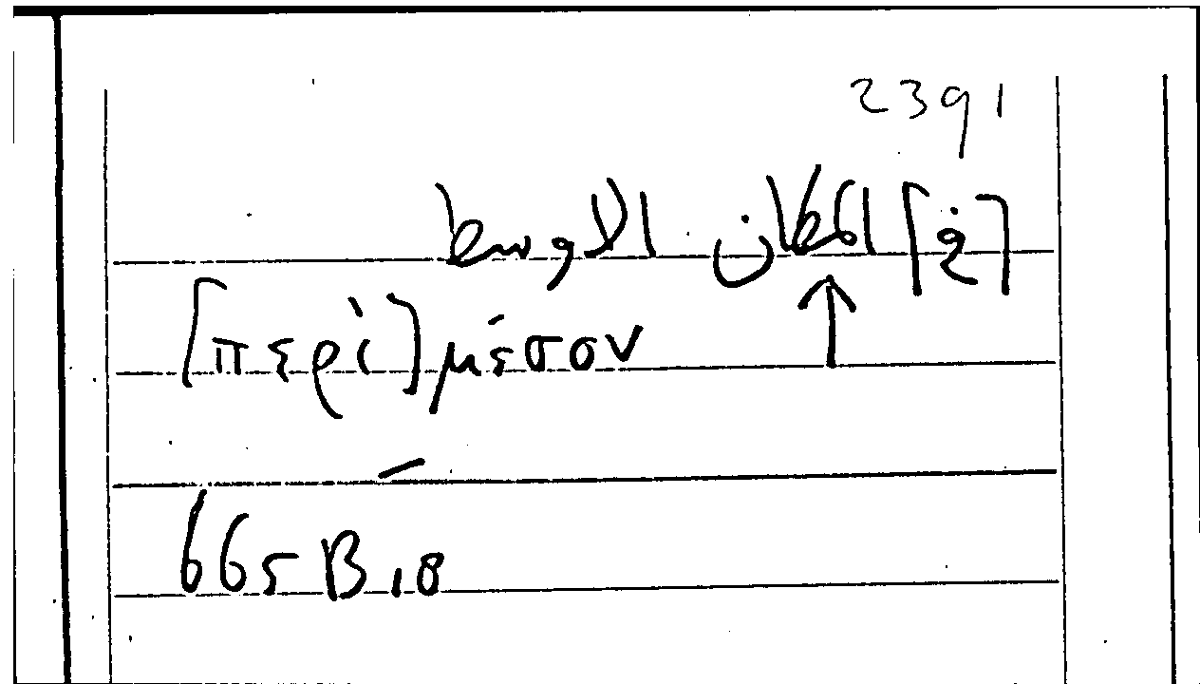 2391
[في] المكان الاوسط
↑
[περὶ] μέσον
665 B 10